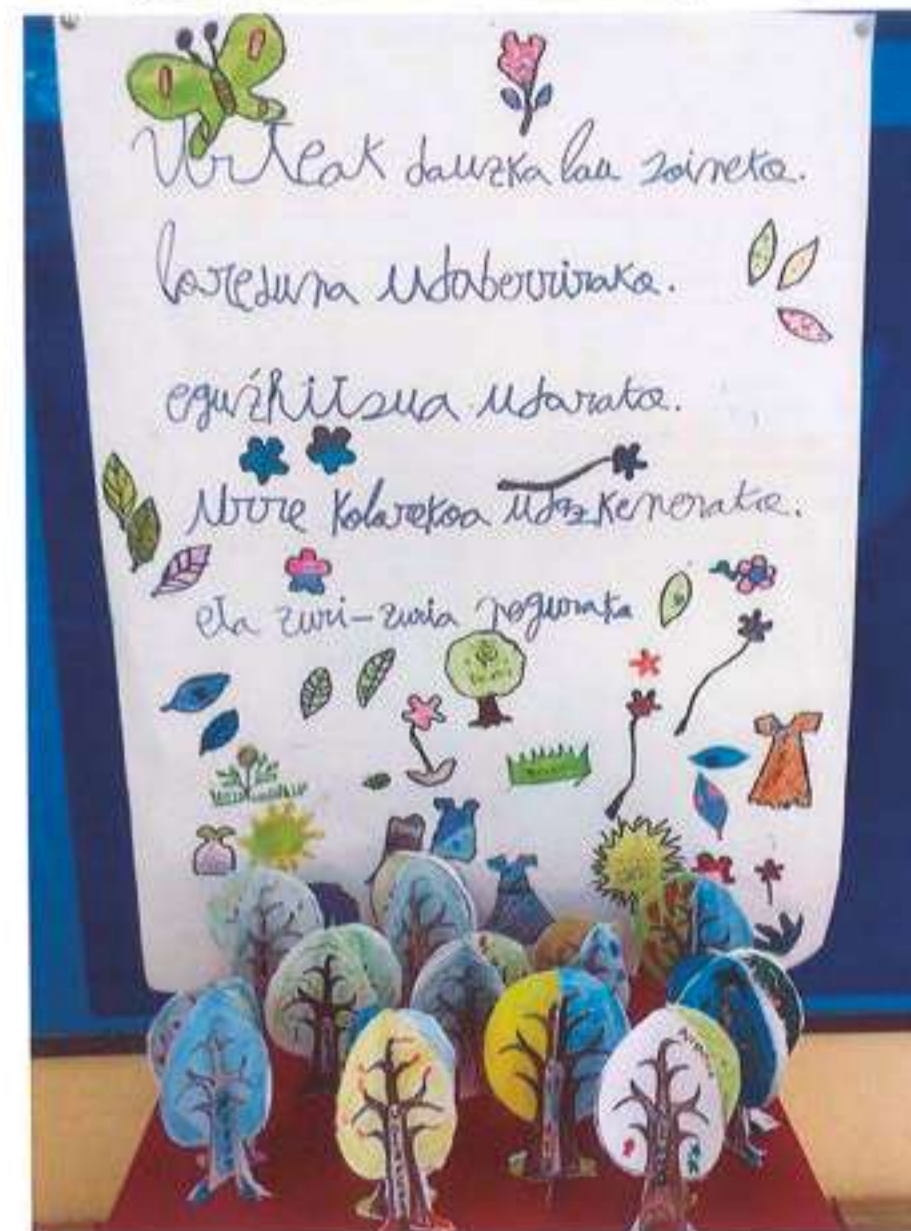 Urteak dauzka lau soineko.
loreduna udaberrirako.
eguzkitsua udarako.
Urre kolorekoa udazkenerako.
eta zuri-zuria negurako